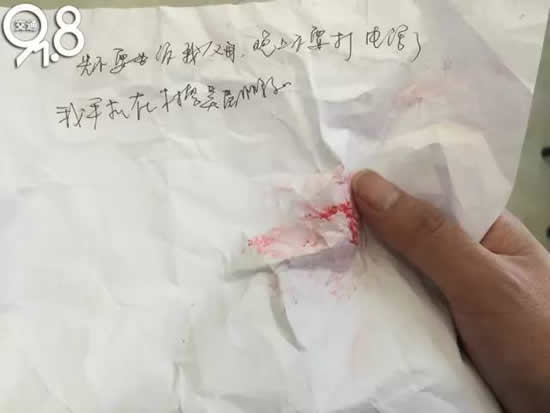 交通
91.8
先不要告诉我父母,晚上不要打电话了
我手机在